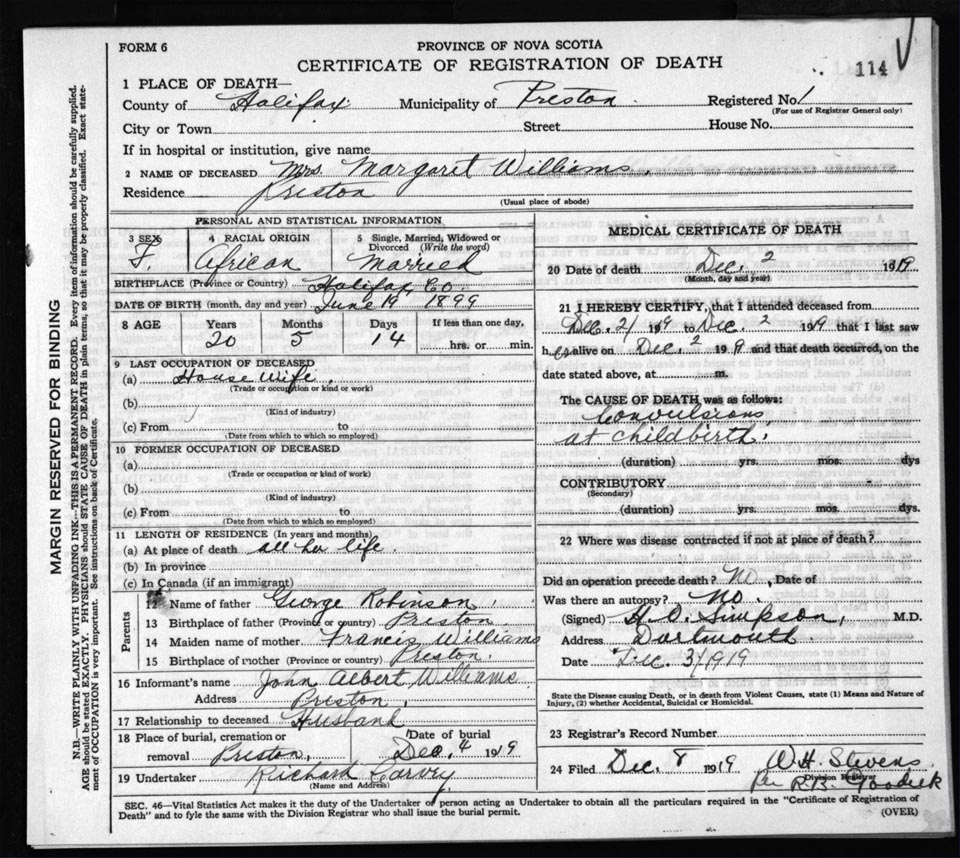 FORM 6
PROVINCE OF NOVA SCOTIA
CERTIFICATE OF REGISTRATION OF DEATH
114
1 PLACE OF DEATH—
County of Halifax Municipality of Preston Registered No. 1
(For use of Registrar General only)
City or Town Street House No.
If in hospital or institution, give name
2 NAME OF DECEASED Mrs. Margaret Williams.
Residence Preston
(Usual place of abode)
PERSONAL AND STATISTICAL INFORMATION
3 SEX F.
4 RACIAL ORIGIN African
5 Single, Married, Widowed or Divorced (Write the word) Married
BIRTHPLACE (Province or Country) Halifax Co.
DATE OF BIRTH (month, day and year) June 19 1899
8 AGE Years Months Days If less than one day,
20 5 14 hrs. or min.
9 LAST OCCUPATION OF DECEASED
(a) House wife.
(Trade or occupation or kind or work)
(b)
(Kind of industry)
(c) From to
(Date from which to which so employed)
10 FORMER OCCUPATION OF DECEASED
(a)
(Trade or occupation or kind of work)
(b)
(Kind of industry)
(c) From to
(Date from which to which so employed)
11 LENGTH OF RESIDENCE (In years and months)
(a) At place of death all her life.
(b) In province
(c) In Canada (if an immigrant)
Parents
12 Name of father George Robinson,
13 Birthplace of father (Province or country) Preston.
14 Maiden name of mother Francis Williams
15 Birthplace of mother (Province or country) Preston.
16 Informant's name John Albert Williams
Address Preston,
17 Relationship to deceased Husband
18 Place of burial, cremation or removal Preston, Date of burial Dec. 4 1919
19 Undertaker Richard Carvy,
(Name and Address)
MEDICAL CERTIFICATE OF DEATH
20 Date of death Dec. 2 1919
(Month, day and year)
21 I HEREBY CERTIFY, that I attended deceased from
Dec. 2/ 1919 to Dec. 2 1919 that I last saw
her alive on Dec. 2 1919 and that death occurred, on the
date stated above, at m.
The CAUSE OF DEATH was as follows:
Convulsions
at childbirth.
(duration) yrs. mos. dys
CONTRIBUTORY
(Secondary)
(duration) yrs. mos. dys.
22 Where was disease contracted if not at place of death?
Did an operation precede death? No, Date of
Was there an autopsy? No.
(Signed) H.O. Simpson, M.D.
Address Dartmouth
Date Dec. 3/1919
State the Disease causing Death, or in death from Violent Causes, state (1) Means and Nature of
Injury, (2) whether Accidental, Suicidal or Homicidal.
23 Registrar's Record Number
24 Filed Dec. 8 1919 W.H. Stevens
Division Registrar
Per R.B.
SEC. 46—Vital Statistics Act makes it the duty of the Undertaker or person acting as Undertaker to obtain all the particulars required in the "Certificate of Registration of
Death" and to fyle the same with the Division Registrar who shall issue the burial permit. (OVER)
MARGIN RESERVED FOR BINDING
N.B.—WRITE PLAINLY WITH UNFADING INK—THIS IS A PERMANENT RECORD. Every item of information should be carefully supplied.
AGE should be stated EXACTLY. PHYSICIANS should STATE CAUSE OF DEATH in plain terms, so that it may be properly classified. Exact state-
ment of OCCUPATION is very important. See instructions on back of Certificate.